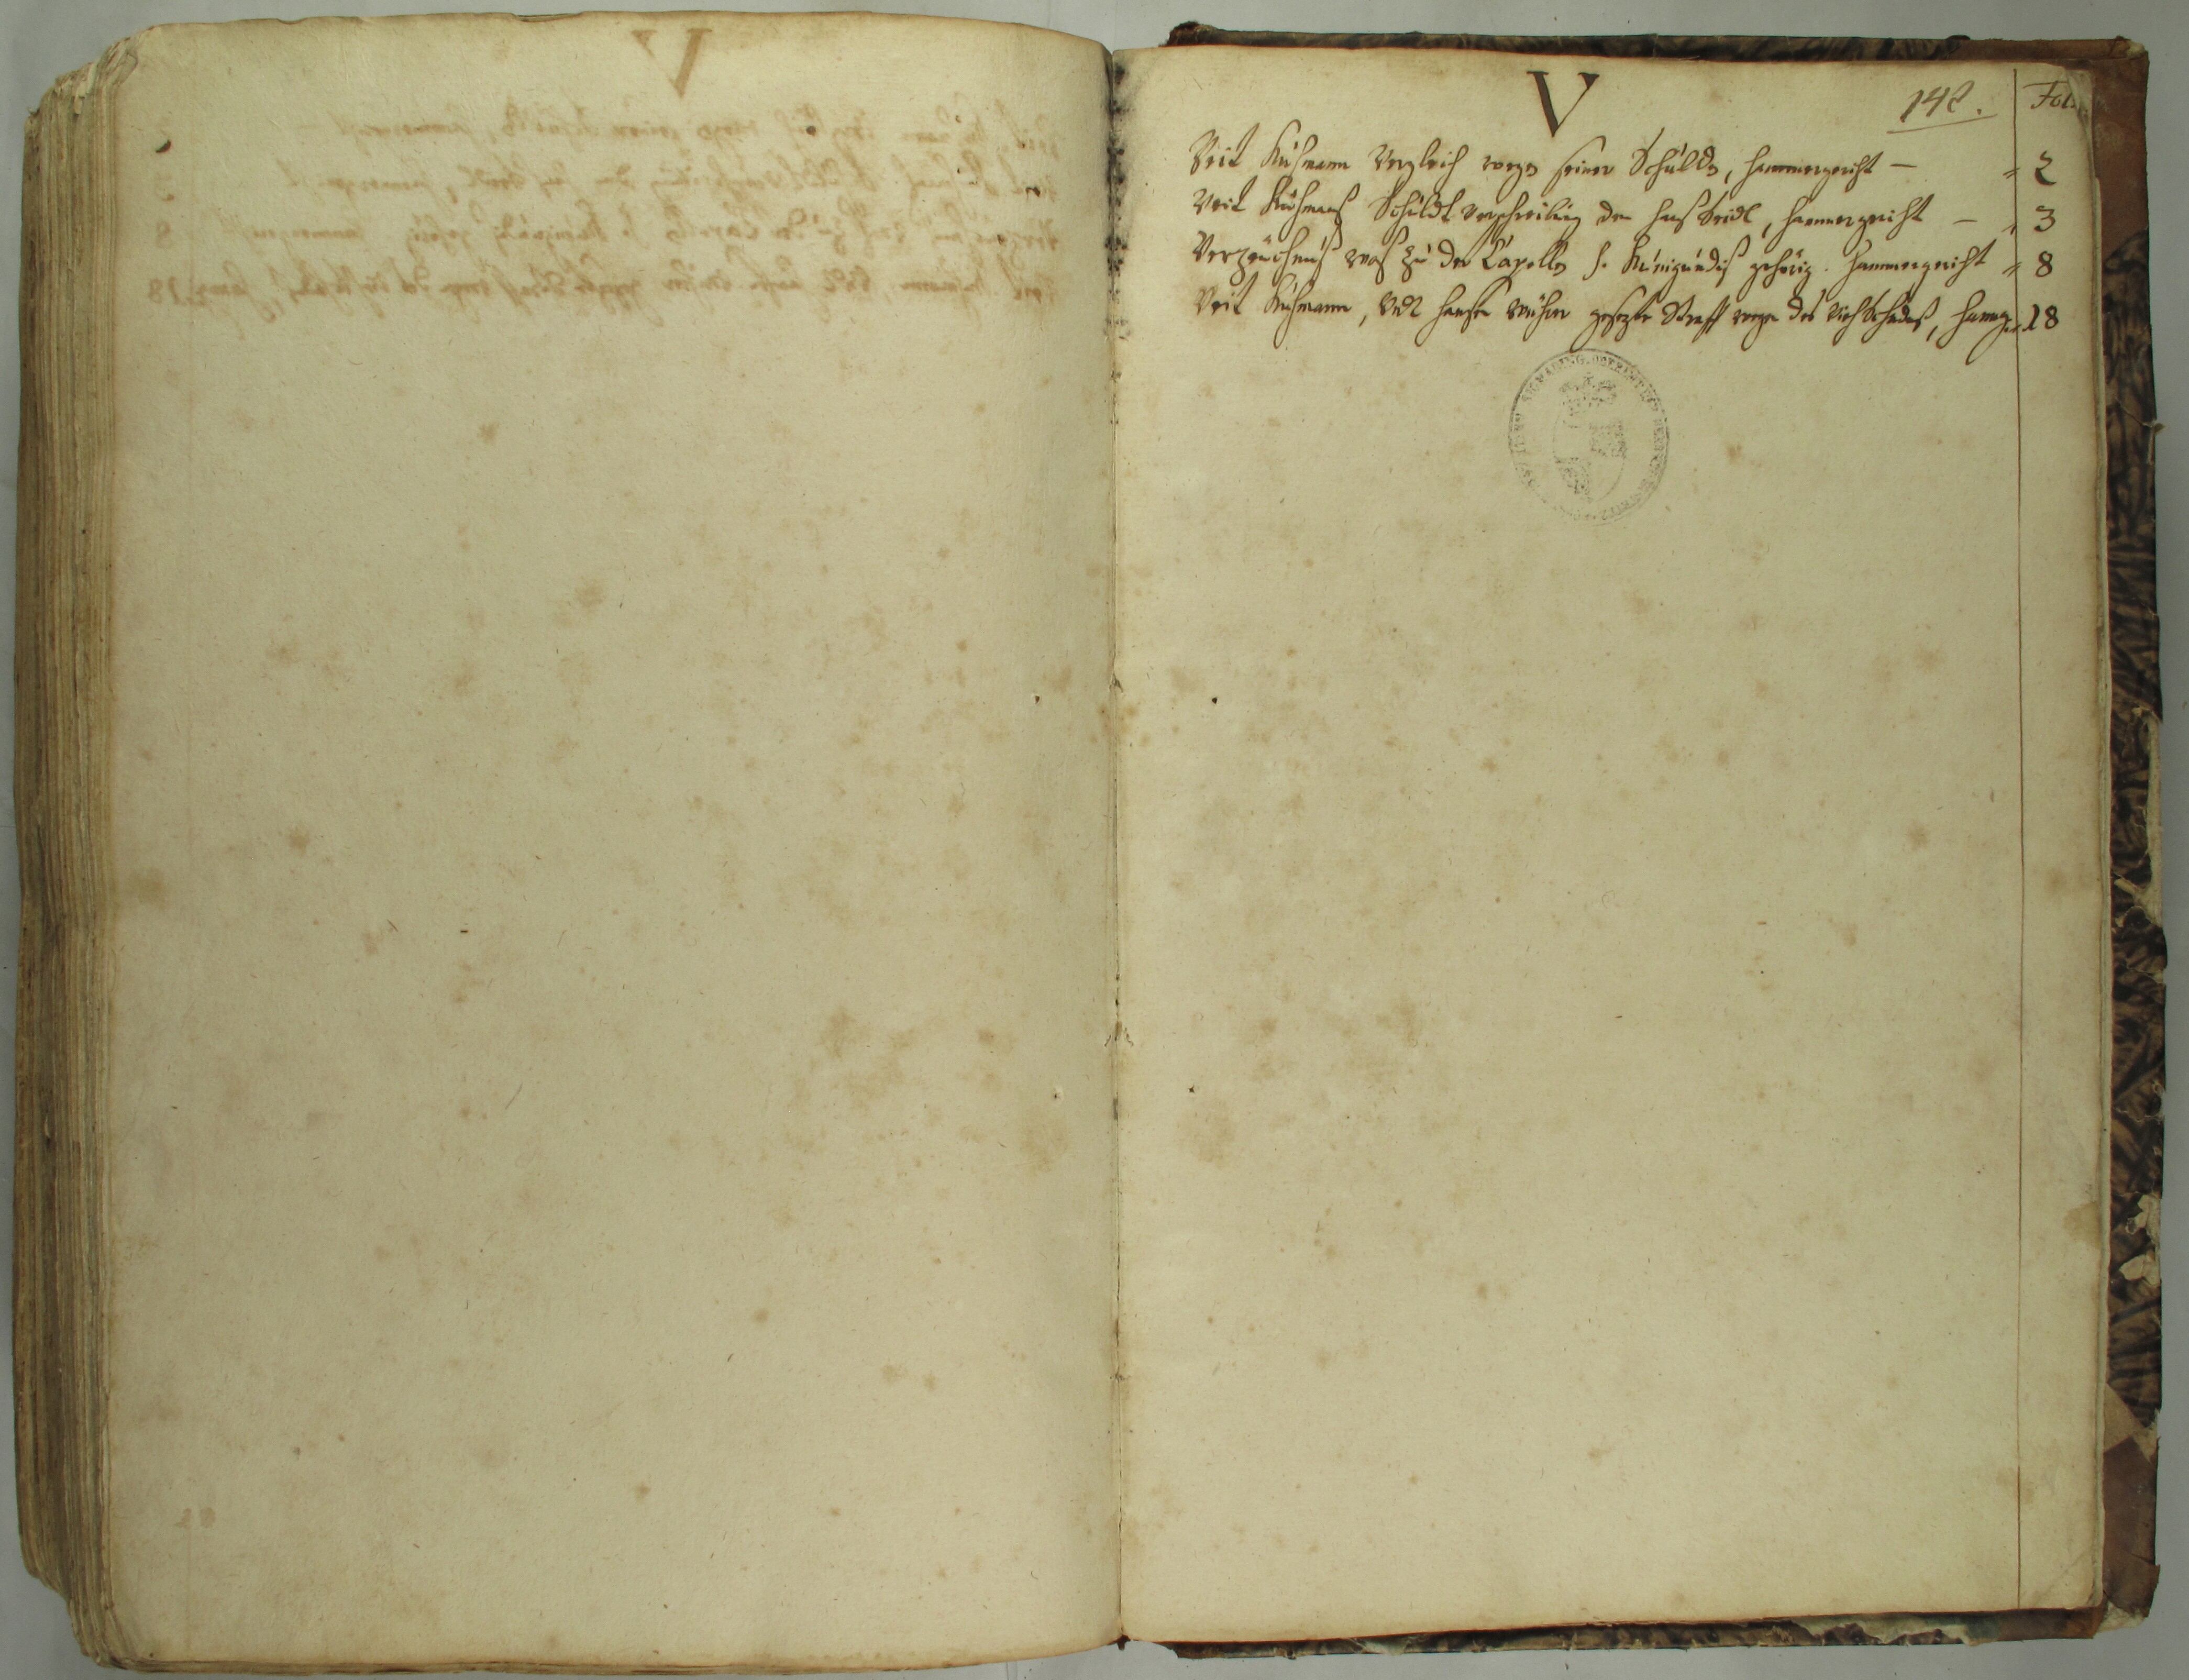 V
142.
Fol.
Veit Kühmann Vergleich wegen seiner Schulden, Hammergericht — 2
Veit Kühmans Schuldt verschreibung den Hanß Seidl, Hammergericht — 3
Verzeüchnuß waß zu der Capellen S. Kunigundis gehörig. Hammergericht 8
Veit Kühmann, Vndt Hanßen gesezte Straff wegen des Viehschadens, Hammg. 18